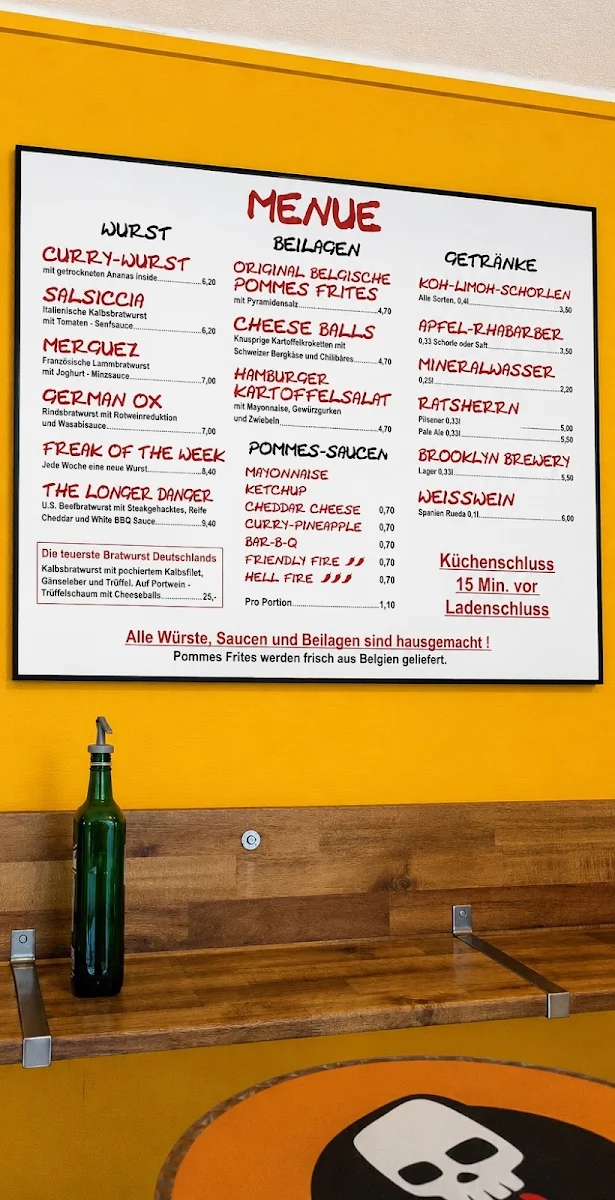 MENUE
WURST
CURRY-WURST
mit getrockneten Ananas inside 6,20
SALSICCIA
Italienische Kalbsbratwurst
mit Tomaten - Senfsauce 6,20
MERGUEZ
Französische Lammbratwurst
mit Joghurt - Minzsauce 7,00
GERMAN OX
Rindsbratwurst mit Rotweinreduktion
und Wasabisauce 7,00
FREAK OF THE WEEK
Jede Woche eine neue Wurst 8,40
THE LONGER DANGER
U.S. Beefbratwurst mit Steakgehacktes, Reife
Cheddar und White BBQ Sauce 9,40
Die teuerste Bratwurst Deutschlands
Kalbsbratwurst mit pochiertem Kalbsfilet,
Gänseleber und Trüffel. Auf Portwein -
Trüffelschaum mit Cheeseballs 25,-
BEILAGEN
ORIGINAL BELGISCHE
POMMES FRITES
mit Pyramidensalz 4,70
CHEESE BALLS
Knusprige Kartoffelkroketten mit
Schweizer Bergkäse und Chilibäres 4,70
HAMBURGER
KARTOFFELSALAT
mit Mayonnaise, Gewürzgurken
und Zwiebeln 4,70
POMMES-SAUCEN
MAYONNAISE
KETCHUP
CHEDDAR CHEESE 0,70
CURRY-PINEAPPLE 0,70
BAR-B-Q 0,70
FRIENDLY FIRE 0,70
HELL FIRE 0,70
Pro Portion 1,10
GETRÄNKE
KOH-LIMOH-SCHORLEN
Alle Sorten, 0,4l 3,50
APFEL-RHABARBER
0,33 Schorle oder Saft 3,50
MINERALWASSER
0,25l 2,20
RATSHERRN
Pilsener 0,33l 5,00
Pale Ale 0,33l 5,50
BROOKLYN BREWERY
Lager 0,33l 5,50
WEISSWEIN
Spanien Rueda 0,1l 6,00
Küchenschluss
15 Min. vor
Ladenschluss
Alle Würste, Saucen und Beilagen sind hausgemacht !
Pommes Frites werden frisch aus Belgien geliefert.